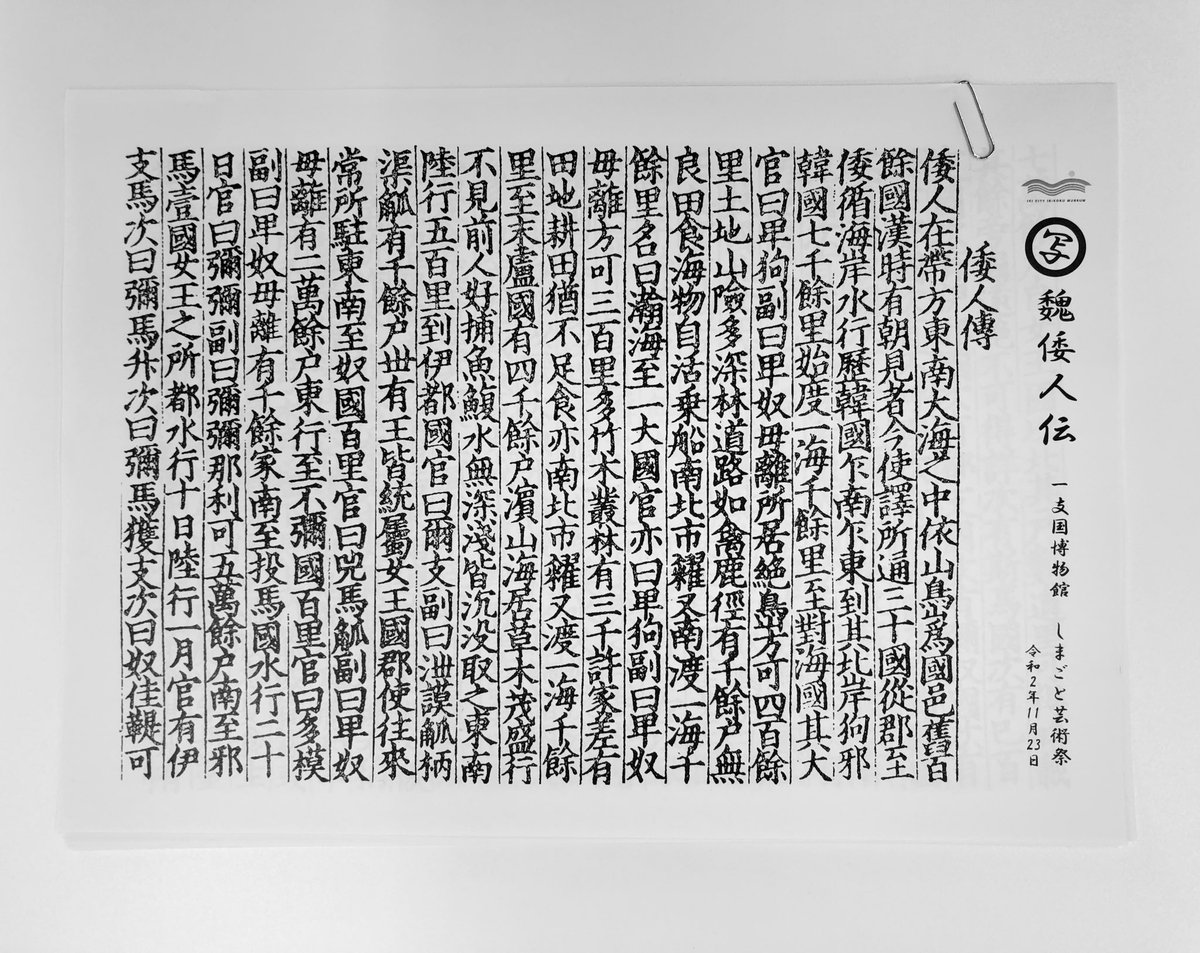 IKI CITY IKIKOKU MUSEUM
写
魏倭人伝
一支国博物館 しまごと芸術祭
令和2年11月23日
倭人傳
倭人在帶方東南大海之中依山島爲國邑舊百
餘國漢時有朝見者今使譯所通三十國從郡至
倭循海岸水行歷韓國乍南乍東到其北岸狗邪
韓國七千餘里始度一海千餘里至對海國其大
官曰卑狗副曰卑奴毋離所居絶島方可四百餘
里土地山險多深林道路如禽鹿徑有千餘户無
良田食海物自活乗船南北市糴又南渡一海千
餘里名曰瀚海至一大國官亦曰卑狗副曰卑奴
毋離方可三百里多竹木叢林有三千許家差有
田地耕田猶不足食亦南北市糴又渡一海千餘
里至末盧國有四千餘户濵山海居草木茂盛行
不見前人好捕魚鰒水無深淺皆沉没取之東南
陸行五百里到伊都國官曰爾支副曰泄謨觚柄
渠觚有千餘户丗有王皆統屬女王國郡使往來
常所駐東南至奴國百里官曰兕馬觚副曰卑奴
毋離有二萬餘户東行至不彌國百里官曰多模
副曰卑奴毋離有千餘家南至投馬國水行二十
日官曰彌彌副曰彌彌那利可五萬餘户南至邪
馬壹國女王之所都水行十日陸行一月官有伊
支馬次曰彌馬升次曰彌馬獲支次曰奴佳鞮可